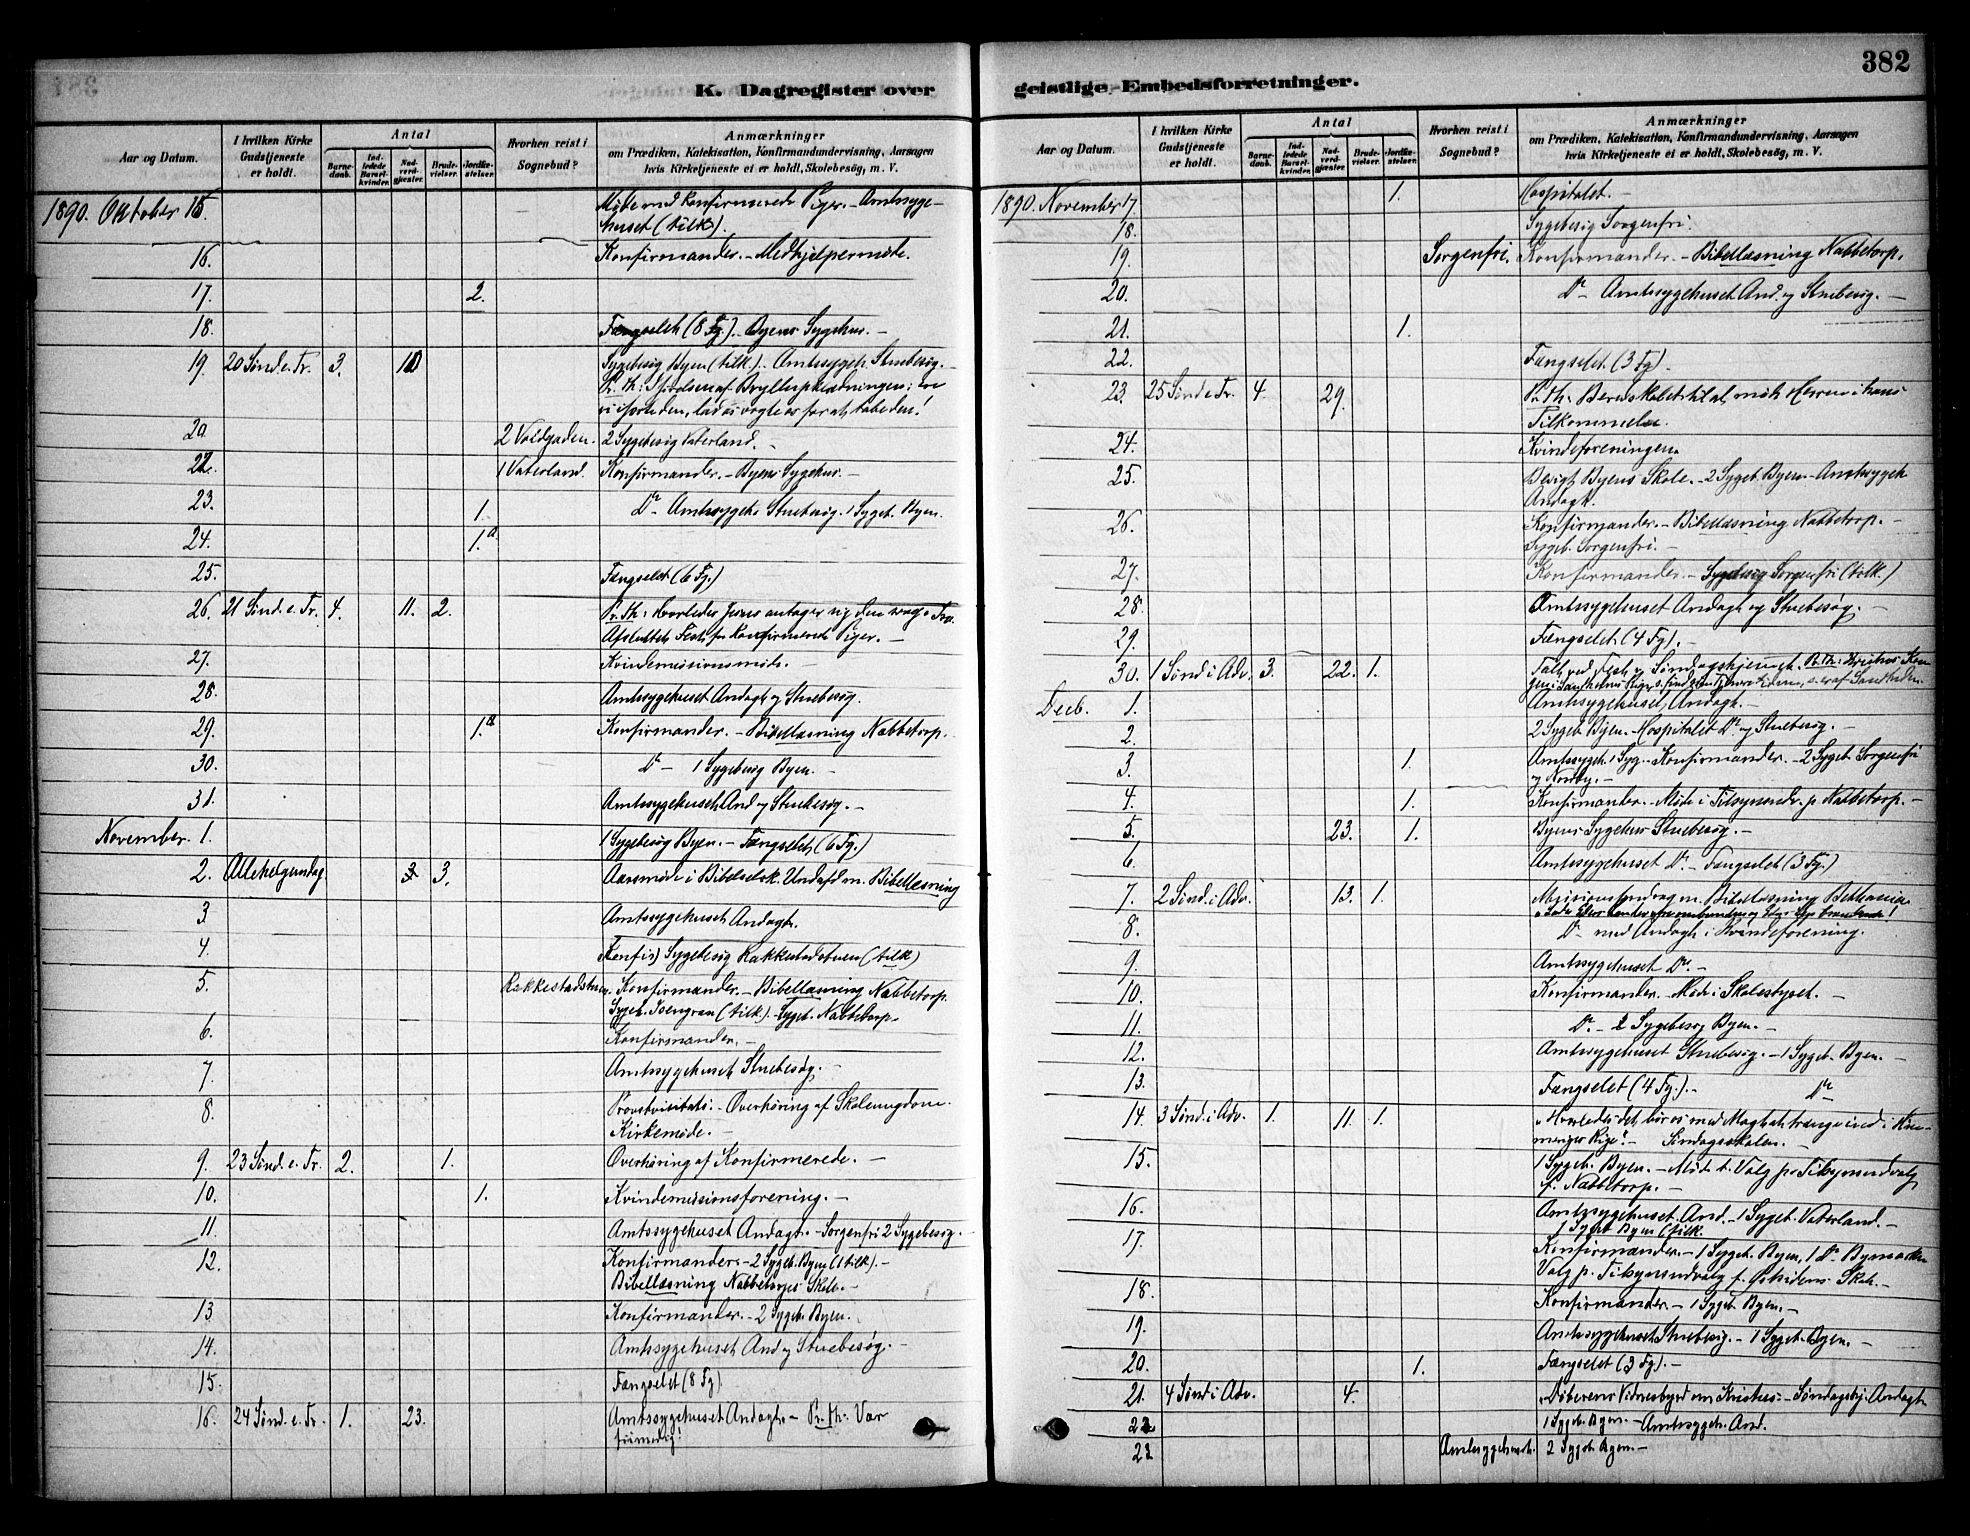 382
K. Dagregister over
geistlige Embedsforretninger.
Aar og Datum.
I hvilken Kirke Gudstjeneste er holdt.
Antal
Barnedaab.
Indledede Barselkvinder.
Nadverdgjester.
Brudevielser.
Jordfæstelser.
Hvorhen reist i Sognebud?
Anmærkninger
om Prædiken, Katekisation, Konfirmandundervisning, Aarsagen
hvis Kirketjeneste ei er holdt, Skolebesøg, m. V.
1890. Oktober 15. Møde med Konfirmerede Piger. - Amtssyge-
huset (tilk).
16. Konfirmander. - Medhjælpermøde.
17. 2.
18. Fængselet (8 Fg). - Byens Sygehus. -
19. 20 Sønd. e. Tr. 3. Sygebesøg Byen (tilk). - Amtssygeh. Stuebesøg. -
20 2 Voldgaden. 2 Sygebesøg Vaterland. -
22. 1 Vaterland. Konfirmander. - Byens Sygehus. -
23. 1. Do - Amtssygeh. Stuebesøg. 1 Sygeb. Byen.
24. 1.
25. Fængselet (6 Fg.)
26. 21 Sønd. e. Tr. 4. 11. 2. Pr. Th: Hvorledes Jesus antager sig den
Afsluttet Fest for Konfirmerede Piger. -
27. Kvindemissionsmøde. -
28. Amtssygehuset Andagt og Stuebesøg.
29. 1. Konfirmander. - Bibellæsning Nabbetorp.
30. Do - 1 Sygebesøg Byen. -
31. Amtssygehuset And. og Stuebesøg. -
November. 1. 1 Sygebesøg Byen. - Fængselet (6 Fg.)
2. Allehelgensdag. 3. Aarsmøde i Bibelselsk. m. Bibellæsning
3. Amtssygehuset Andagt.
4. (Konfir) Sygebesøg Rakkestadstuen (tilk)
5. Rakkestadstuen. Konfirmander. - Bibellæsning Nabbetorp.
Sygeb. Isengran (tilk). - Sygeb. Nabbetorp.
6. Konfirmander. -
7. Amtssygehuset Stuebesøg. -
8. Provstvisitats. - Overhøring af Skoleungdom.
Kirkemøde. -
9. 23 Sønd. e. Tr. 2. 1. Overhøring af Konfirmerede. -
10. 1. Kvindemissionsforening. -
11. Amtssygehuset Andagt. - Sorgenfri 2 Sygebesøg. -
12. Konfirmander. - 2 Sygeb. Byen (1 tilk). -
Bibellæsning Nabbetorps Skole. -
13 Konfirmander. - 2 Sygeb. Byen. -
14. Amtssygehuset And. og Stuebesøg. -
15. Fængselet (8 Fg)
16. 24 Sønd. e. Tr. 1. 23. Amtssygehuset Andagt. - Pr. Th: Vær
Aar og Datum.
I hvilken Kirke Gudstjeneste er holdt.
Antal
Barnedaab.
Indledede Barselkvinder.
Nadverdgjester.
Brudevielser.
Jordfæstelser.
Hvorhen reist i Sognebud?
Anmærkninger
om Prædiken, Katekisation, Konfirmandundervisning, Aarsagen
hvis Kirketjeneste ei er holdt, Skolebesøg, m. V.
1890. November 17. 1. Hospitalet. -
18. Sygebesøg Sorgenfri.
19. Sorgenfri. Konfirmander. - Bibellæsning Nabbetorp.
20. Do - Amtssygehuset And. og Stuebesøg. -
21. 1.
22. Fængselet (3 Fg).
23. 25 Sønd. e. Tr. 4. 29. Pr. Th: Beredskabet til at møde Herren i hans
Tilkommelse
24. Kvindeforeningen.
25. Besøgt Byens Skole. - 2 Sygeb. Byen - Amtssygeh.
Andagt.
26. Konfirmander. - Bibellæsning Nabbetorp. -
Sygeb. Sorgenfri. -
27. Konfirmander. - Sygebesøg Sorgenfri (tilk.)
28. Amtssygehuset Andagt og Stuebesøg. -
29. Fængselet (4 Fg). -
30. 1 Sønd. i Adv. 3. 22. 1. Tale ved Fest Søndagshjemmet. Pr. Th:
Decb. 1. Amtssygehuset, Andagt. -
2. 2 Sygeb. Byen. - Hospitalet Do og Stuebesøg. -
3. 1. Amtssygeh. 1 Syg. - Konfirmander. - 2 Sygeb. Sorgenfri
4. 1. Konfirmander. - Møde i Tilsynsudv. p. Nabbetorp. -
5. 23. 1. Byens Sygehus Stuebesøg. -
6. Amtssygehuset Do. - Fængselet (3 Fg.)
7. 2 Sønd. i Adv. 13. 1. Missionsforedrag m. Bibellæsning Bethania
8. Do - med Andagt i Kvindeforening.
9. Amtssygehuset Do. -
10. Konfirmander. - Møde i Skolestyret. -
11. Do - 2 Sygebesøg Byen. -
12. Amtssygehuset Stuebesøg. - 1 Sygeb. Byen. -
13. Fængselet (4 Fg.). - Do
14. 3 Sønd. i Adv. 1. 11. 1. Hvorledes det bør os med Magt at trænge ind i Him-
meriges Rige? - Søndagsskolen. -
15. 1 Sygeb. Byen. - Møde t. Valg på Tilsynsudvalg
f. Nabbetorp. -
16. Amtssygehuset And. - 1 Sygeb. Vaterland. -
1 Sygeb. Byen (tilk.
17. Konfirmander. - 1 Sygeb. Byen, 1 Do Bymarken
Valg p. Tilsynsudvalg f. Østsidens Skole. -
18. Konfirmander. - 1 Sygeb. Byen. -
19. Amtssygehuset Stuebesøg. - 1 Sygeb. Byen. -
20. 1. Fængselet (3 Fg). -
21. 4 Sønd. i Adv. 4. Døberens Vidnesbyrd om Kristus. - Søndagshj. Andagt
22 1 Sygeb. Byen. - Amtssygeh. And.
23 Amtssygehuset. 2 Sygeb. Byen. -